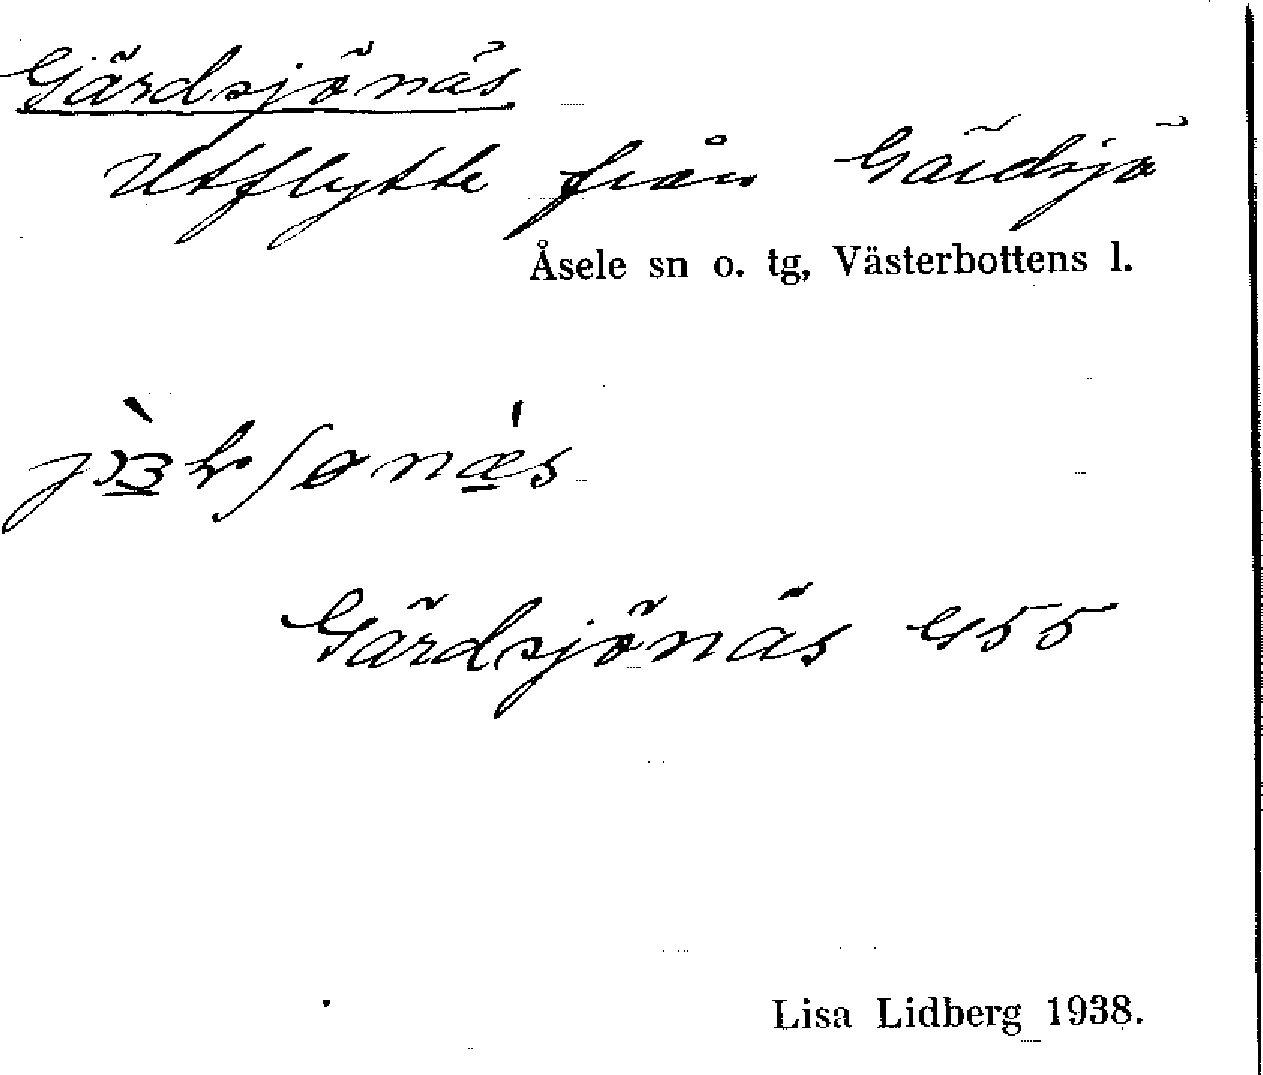 Gärdsjönäs
Utflytte från Gärdsjö
Åsele sn o. tg, Västerbottens l.
Gärdsjönäs G55
Lisa Lidberg 1938.